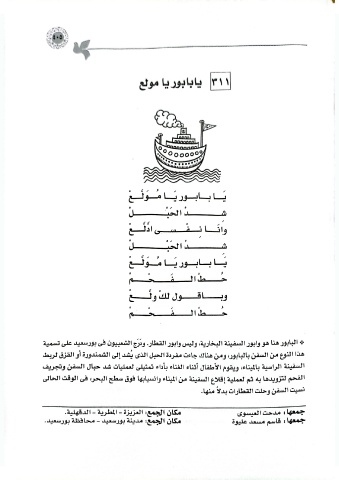 ٤٠٥
٣١١ يا بابور يا مولع
يَـا بـابـور يَـا مُـوَلَّـعْ
شـد الحَبْـــل
وأنَـا نِـفْـسِـى أدَلَّـعْ
شـد الحَبْـــل
يَـا بـابـور يَـا مُـوَلَّـعْ
حُـط الـفَـحَـم
وبـاقـول لك ولَّـعْ
حُـط الـفَـحَـم
* البابور هنا هو وابور السفينة البخارية، وليس وابور القطار. ودَرَج الشعبيون فى بورسعيد على تسمية
هذا النوع من السفن بالبابور، ومن هناك جاءت مفردة الحبل الذى يُشد إلى الشمندورة أو القزق لربط
السفينة الراسية بالميناء، ويقوم الأطفال أثناء الغناء بأداء تمثيلى لعمليات شد حبال السفن وتجريف
الفحم لتزويدها به ثم لعملية إقلاع السفينة من الميناء وانسيابها فوق سطح البحر، فى الوقت الحالى
نسيت السفن وحلت القطارات بدلاً منها.
جمعها: مدحت العيسوى مكان الجمع: العزيزة - المطرية - الدقهلية.
جمعها: قاسم مسعد عليوة مكان الجمع: مدينة بورسعيد - محافظة بورسعيد.